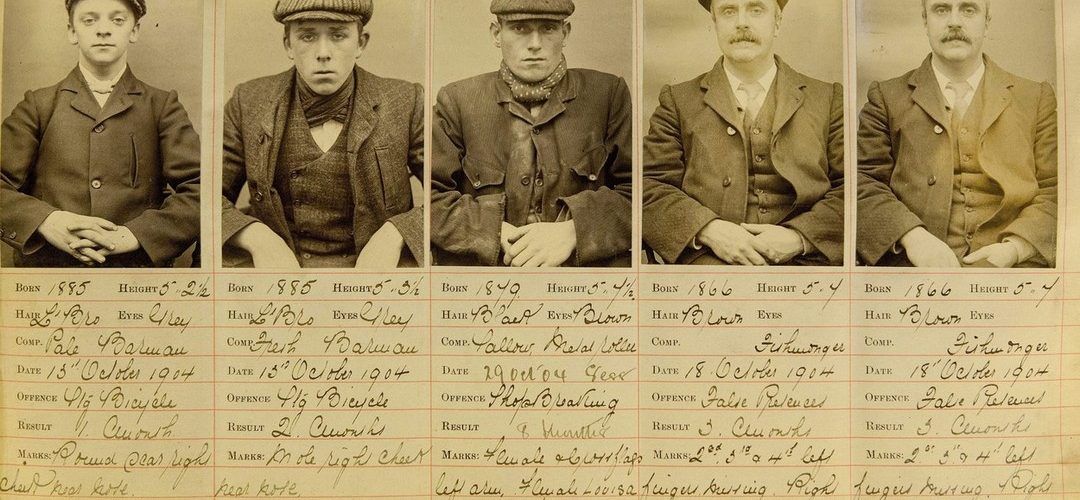 BORN 1885 HEIGHT 5-2½
HAIR L'Bro EYES Grey
COMP. Pale Barman
DATE 13th October 1904
OFFENCE Stg Bicycle
RESULT 1. Month
MARKS: Round scar right
cheek near nose.
BORN 1885 HEIGHT 5-3½
HAIR L'Bro EYES Grey
COMP. Fresh Barman
DATE 13th October 1904
OFFENCE Stg Bicycle
RESULT 2. Months
MARKS: Mole right cheek
near nose.
BORN 1879 HEIGHT 5-4½
HAIR Black EYES Brown
COMP. Sallow Metal roller
DATE 29 Oct 04
OFFENCE Shop Breaking
RESULT 8 months
MARKS: Female & Crossflags
left arm, Female Louisa
BORN 1866 HEIGHT 5-4
HAIR Brown EYES
COMP. Fishmonger
DATE 18 October 1904
OFFENCE False Pretences
RESULT 3. Months
MARKS: 2nd 3rd & 4th left
fingers missing. Right
BORN 1866 HEIGHT 5-4
HAIR Brown EYES
COMP. Fishmonger
DATE 18 October 1904
OFFENCE False Pretences
RESULT 3. Months
MARKS: 2nd 3rd & 4th left
fingers missing. Right